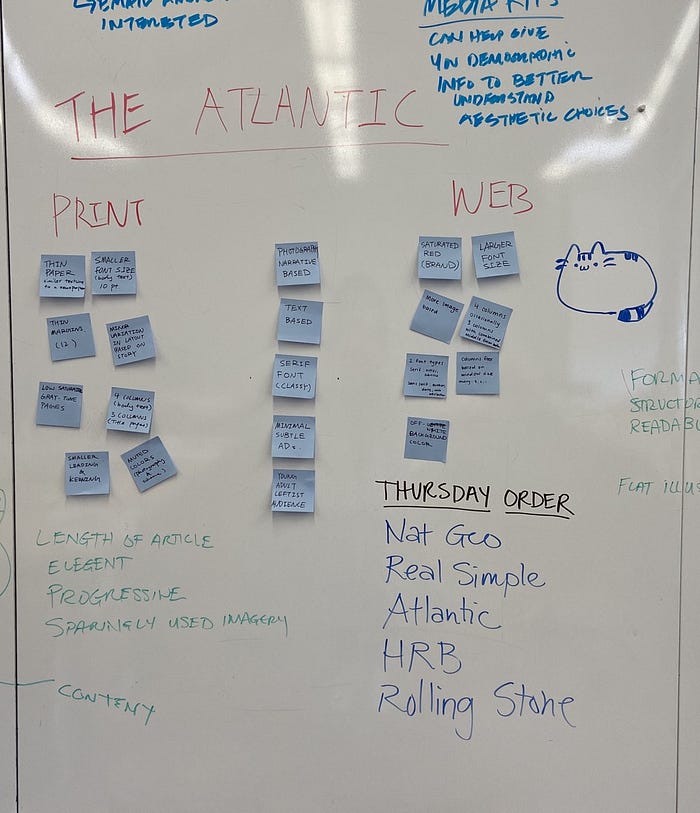 INTERESTED
MEDIA KITS
CAN HELP GIVE
YOU DEMOGRAPHIC
INFO TO BETTER
UNDERSTAND
AESTHETIC CHOICES
THE ATLANTIC
PRINT
WEB
THIN
PAPER
similar texture
to a newspaper
SMALLER
FONT SIZE
(body text)
10 pt.
THIN
MARGINS.
(12)
MINOR
VARIATION
IN LAYOUT
BASED ON
STORY
LOW SATURATED
GRAY-TONE
PAGES
4 COLUMNS
(body text)
3 COLUMNS
(Title pages)
SMALLER
LEADING
&
KERNING
MUTED
COLORS
PHOTOGRAPH
NARRATIVE
BASED
TEXT
BASED
SERIF
FONT
(CLASSY)
MINIMAL
SUBTLE
ADs.
YOUNG
ADULT
LEFTIST
AUDIENCE
SATURATED
RED
(BRAND)
LARGER
FONT
SIZE
More image
based
4 columns
occasionally
3 columns
with combined
2 font types
columns
based on
window size
OFF-WHITE
BACKGROUND
COLOR
FORMA
STRUCTOR
READABL
FLAT ILLUS
LENGTH OF ARTICLE
ELEGENT
PROGRESSIVE
SPARINGLY USED IMAGERY
CONTENT
THURSDAY ORDER
Nat Geo
Real Simple
Atlantic
HRB
Rolling Stone